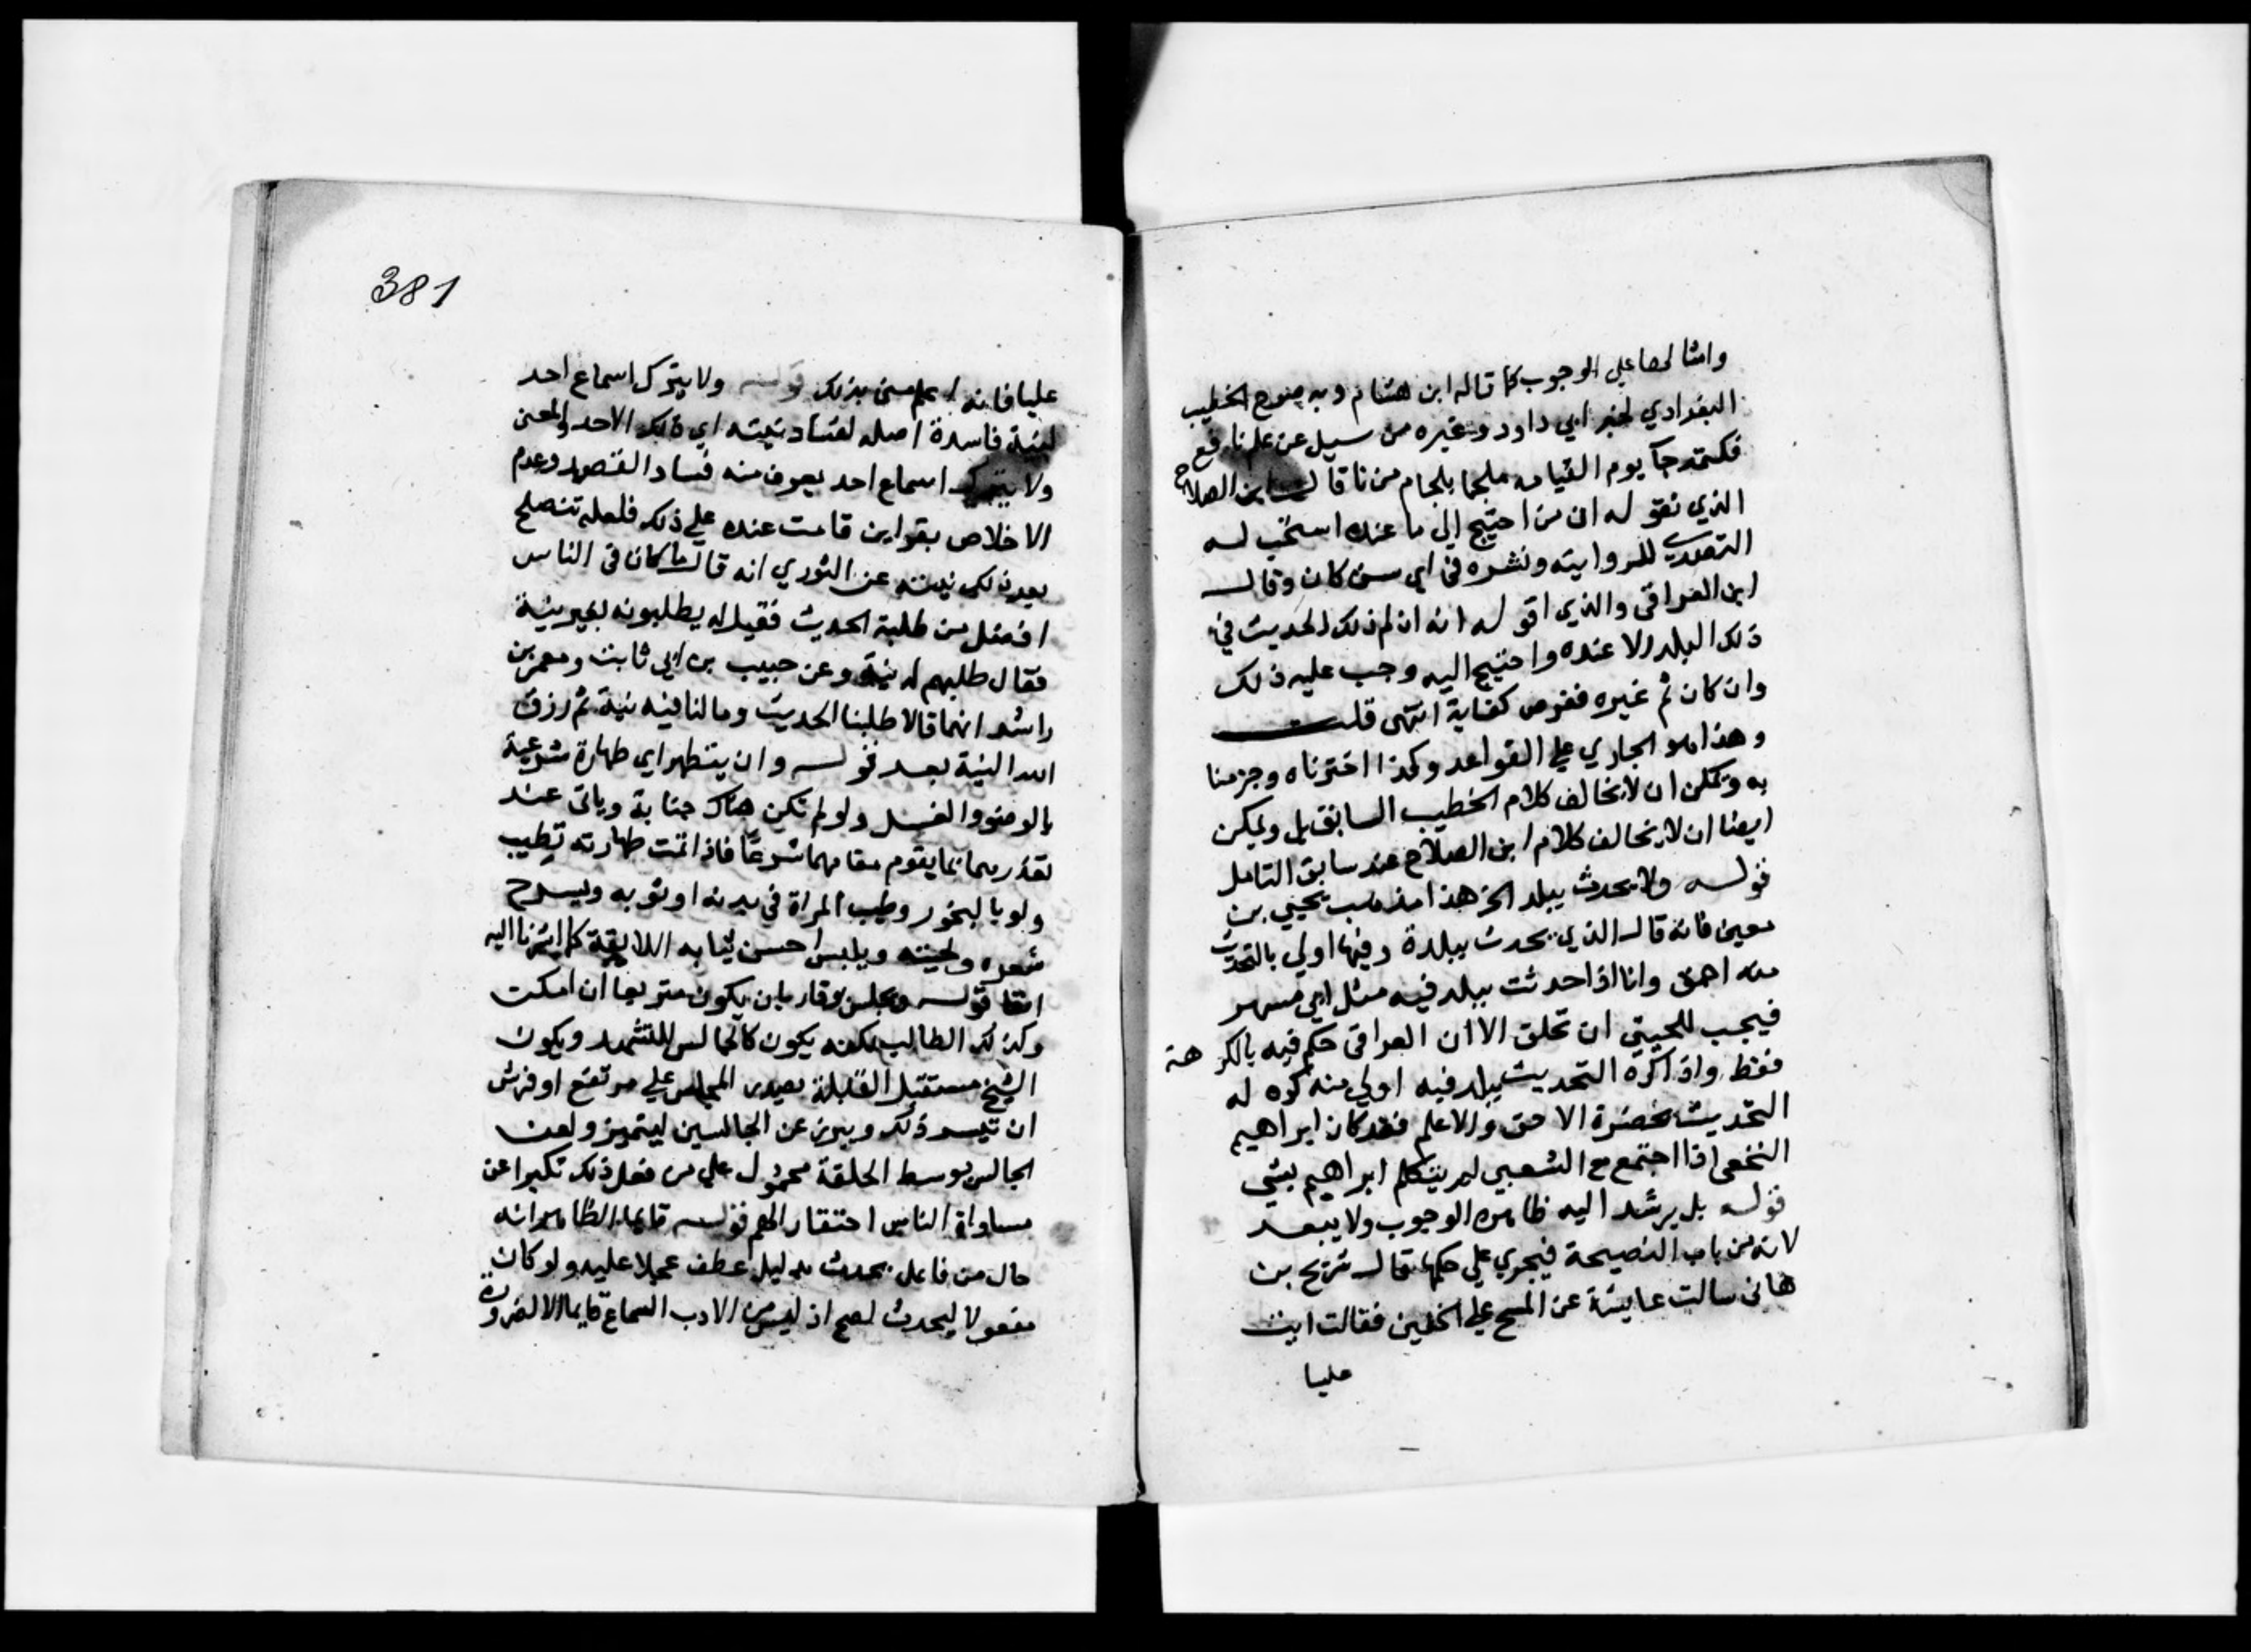 وامثالها علي الوجوب كما قاله ابن هشام وبه صرح الخطيب
البغدادي لخبر ابي داود وغيره من سيل عن علم نافع
فكتمه جآ يوم القيامه ملجما بلجام من نار قال ابن الصلاح
الذي نقوله ان من احتيج الي ما عنده استحب له
التصدي للروايته ونشره في اي سن كان وقال
ابن العراقي والذي اقوله انه ان لم ذلك الحديث في
ذلك البلد الا عنده واحتيج اليه وجب عليه ذلك
وان كان ثم غيره ففرض كفاية انتهى قلت
وهذا هو الجاري علي القواعد وكذا اخترناه وجزمنا
به ويمكن ان لا يخالف كلام الخطيب السابق بل ويمكن
ايضا ان لا يخالف كلام ابن الصلاح عند سابق التامل
قوله ولا يحدث ببلد الخ هذا مذهب يحيي بن
معين فانه قال الذي يحدث ببلدة وفيها اولي بالتحديث
منه احمق وانا اذا حدثت ببلد فيه مثل ابي مسهر
فيجب للحيتي ان تحلق الا ان العراقي حكم فيه بالكراهة
فقط واذا كره التحديث ببلد فيه اولي منه كره له
التحديث بحضرة الاحق والاعلم فقد كان ابراهيم
النخعي اذا اجتمع مع الشعبي لم يتكلم ابراهيم بشي
قوله بل يرشد اليه ظاهره الوجوب ولا يبعد
لانه من باب النصيحة فيجري علي حكمها قال شريح بن
هاني سالت عايشة عن المسح علي الخفين فقالت ايت
عليا
381
عليا فانه اعلم مني بذلك قوله ولا يترك اسماع احد
لنية فاسدة اصله لفساد نيته اي ذلك الاحد والمعني
ولا يترك اسماع احد يعرف منه فساد القصد وعدم
الاخلاص بقراين قامت عنده علي ذلك فلعله تنصلح
بعد ذلك نيته عن الثوري انه قال ما كان في الناس
افضل من طلبة الحديث فقيل له يطلبونه بغير نية
فقال طلبهم له نية وعن حبيب بن ابي ثابت ومعمر بن
راشد انهما قالا طلبنا الحديث وما لنا فيه نية ثم رزق
الله النية بعد قوله وان يتطهر اي طهارة شرعية
بالوضو والغسل ولو لم تكن هناك جنابة وياتي عند
تعذرهما بما يقوم مقامهما شرعا فاذا تمت طهارته تطيب
ولو بالبخور وطيب المراة في بدنه او ثوبه ويسرح
شعره ولحيته ويلبس احسن ثيابه اللايقة كما اشرنا اليه
انفا قوله ويجلس بوقار بان يكون متربعا ان امكنت
وكذلك الطالب لكنه يكون كالجالس للتشهد ويكون
الشيخ مستقبل القبلة بصدر المجلس علي مرتفع او فرش
ان تيسر ذلك ويبرز عن الجالسين ليتميز ولعن
الجالس بوسط الحلقة محمول علي من فعل ذلك تكبرا عن
مساواة الناس احتقارا لهم قوله قايما الظاهر انه
حال من فاعل يحدث بدليل عطف عجلا عليه ولو كان
مفعولا ليحدث لصح اذ ليس من الادب السماع قايما الا لضرورة